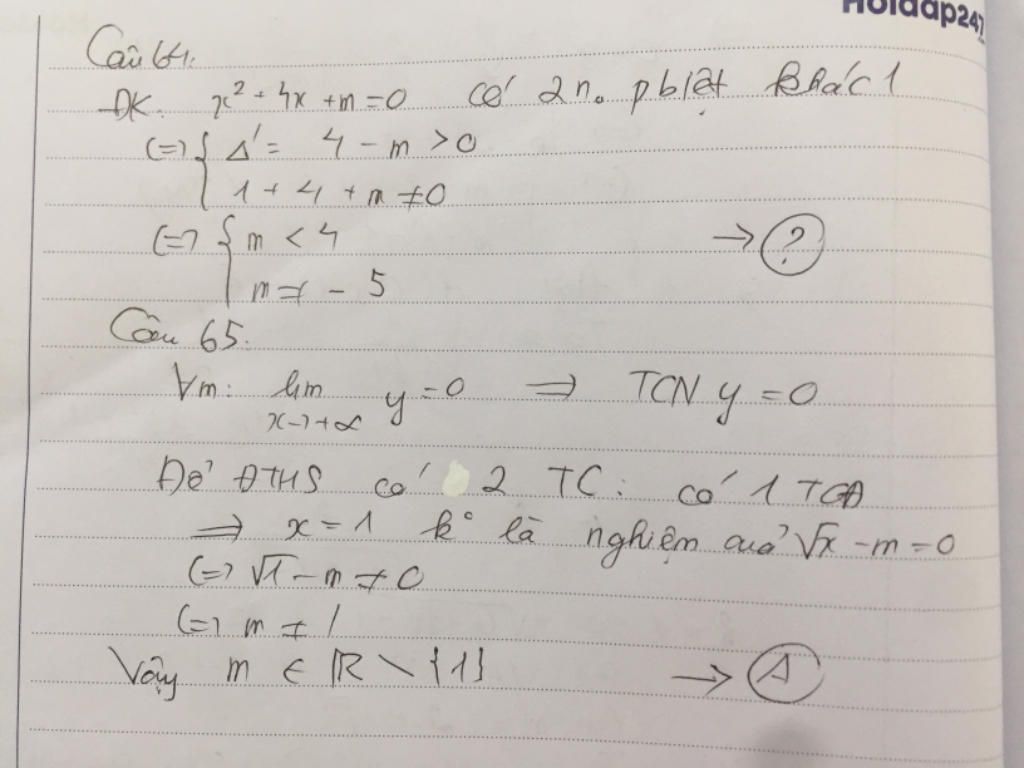 Hoidap247
Câu 64.
ĐK: x² + 4x + m = 0 có 2 n₀ pbiệt khác 1
(=) { Δ' = 4 - m > 0
1 + 4 + m ≠ 0
(=) { m < 4 → ?
m ≠ - 5
Câu 65.
∀m: lim y = 0 => TCN y = 0
x→+∞
Để ĐTHS có 2 TC: có 1 TCĐ
=> x = 1 k° là nghiệm của √x - m = 0
(=) √1 - m ≠ 0
(=) m ≠ 1
Vậy m ∈ ℝ \ {1} → A